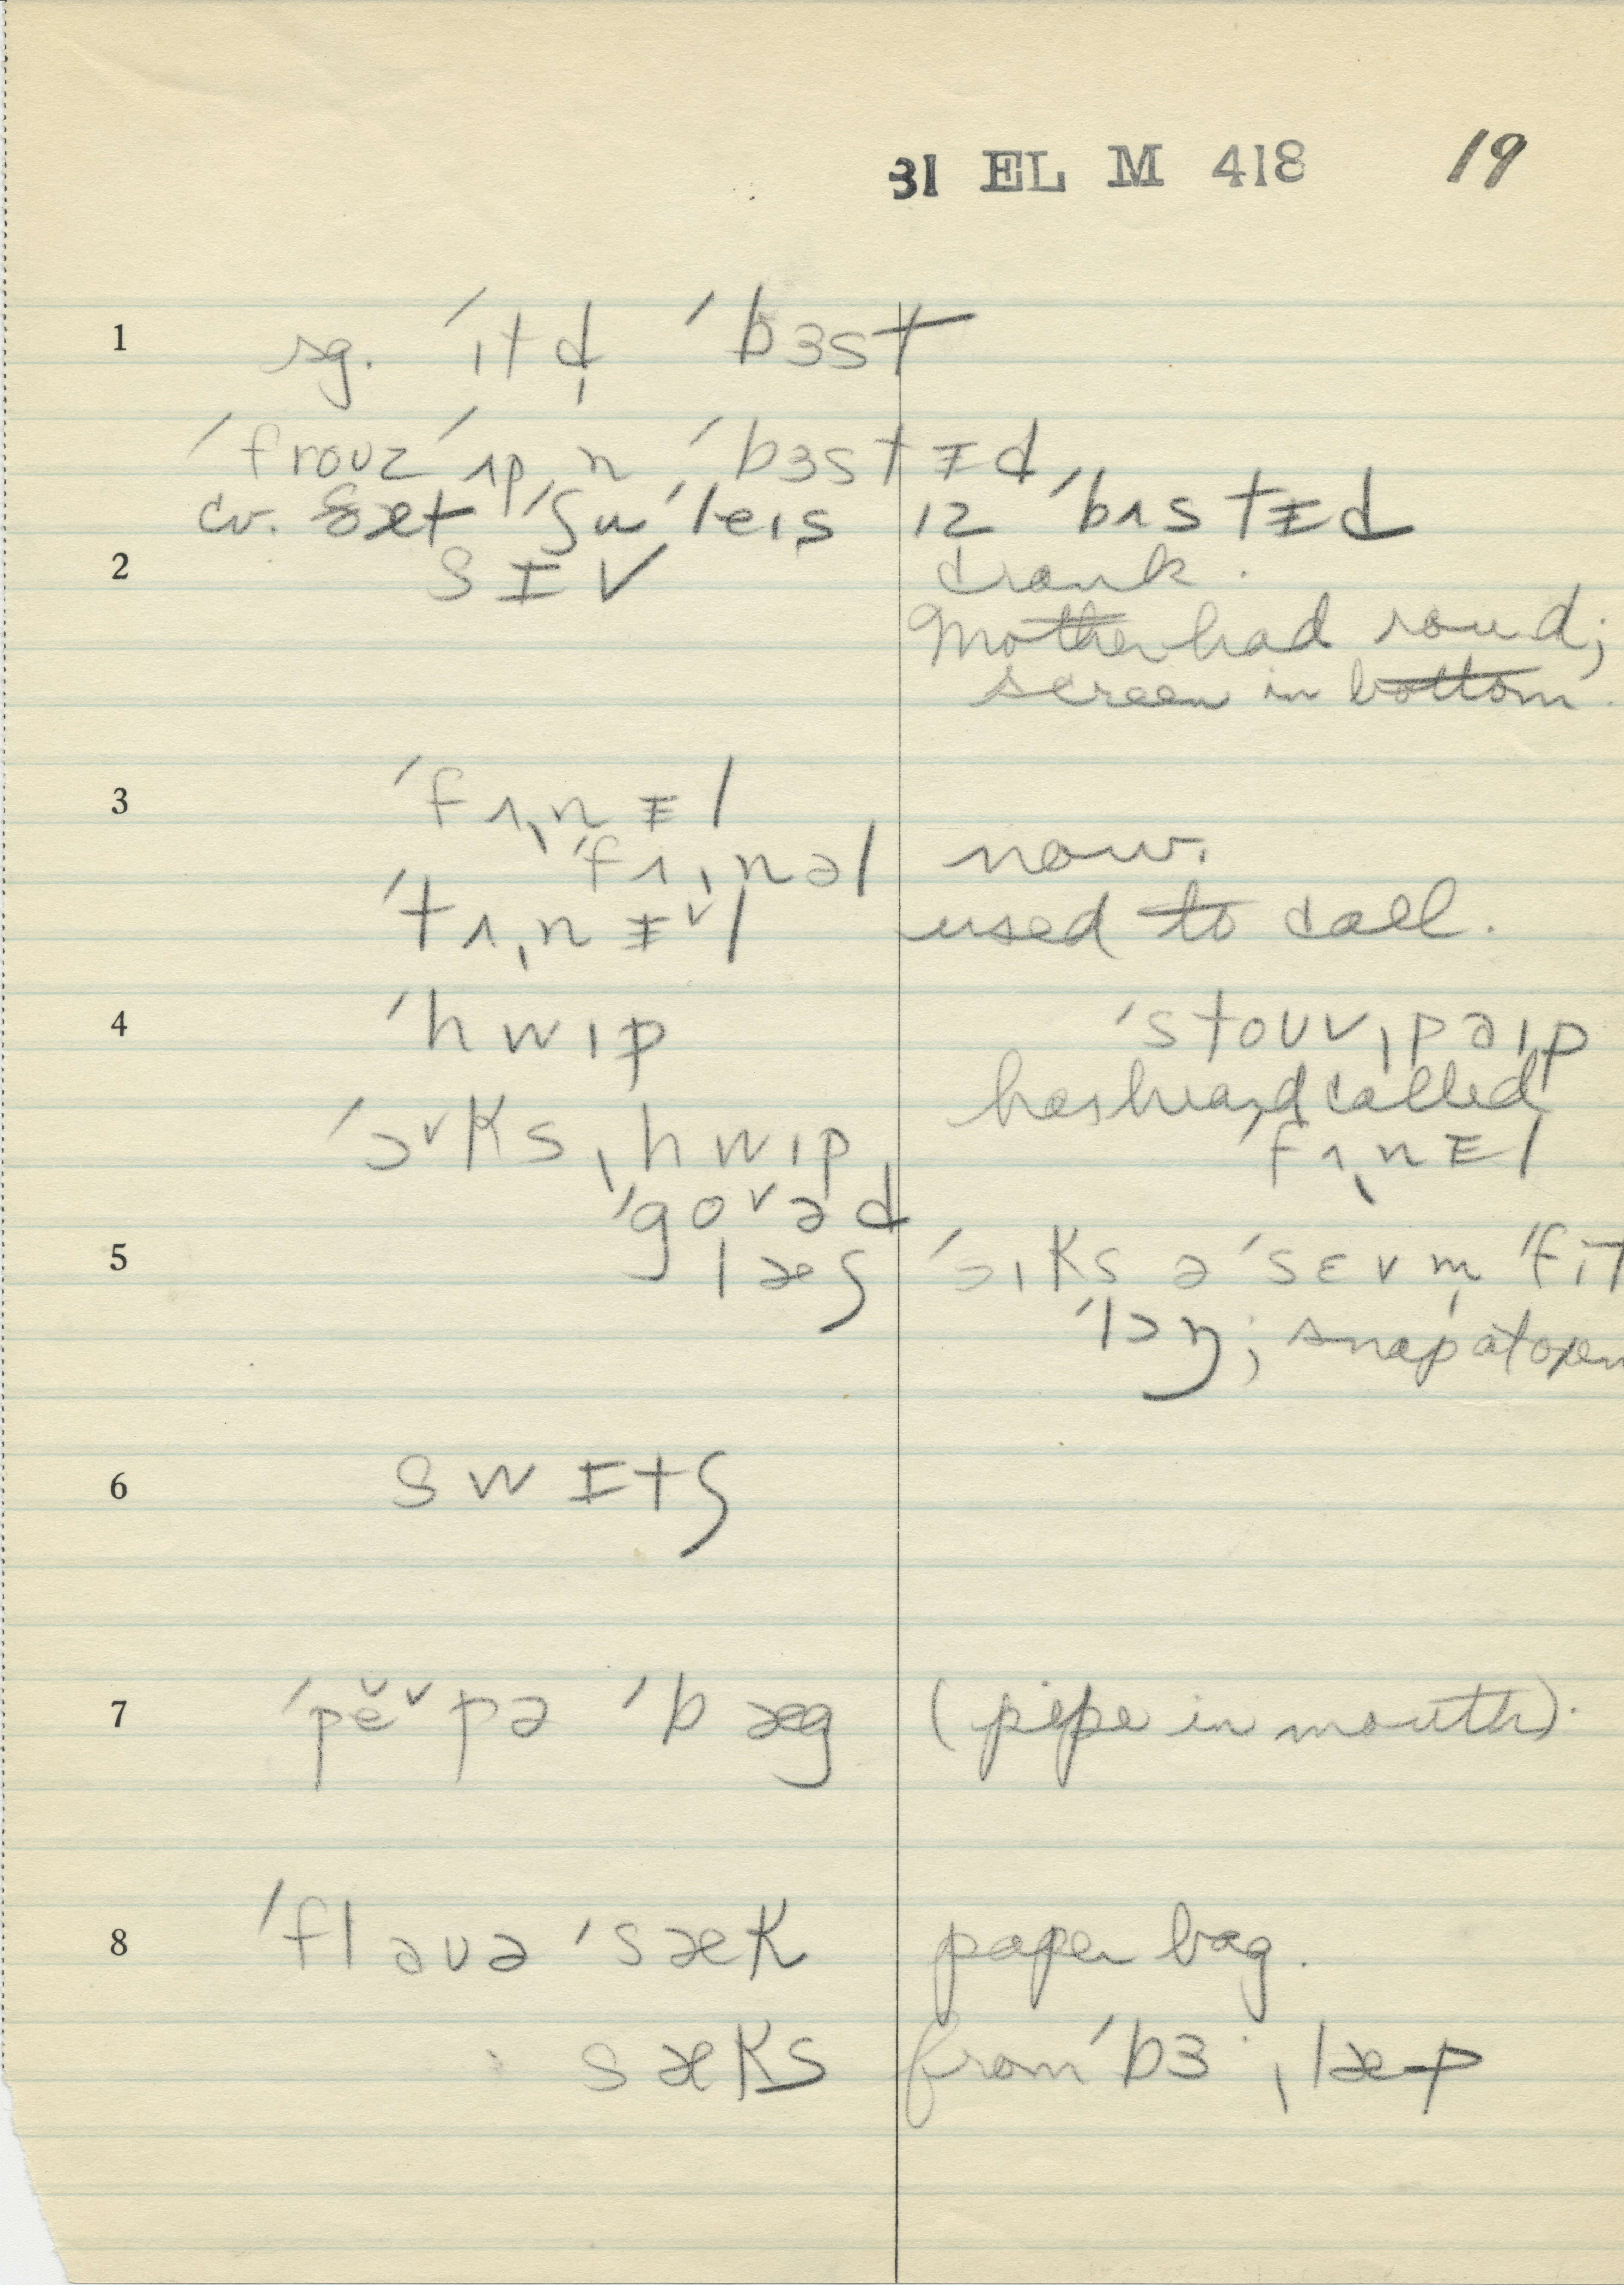 31 EL M 418 19
1 sg. ˈɪtd̩ ˈbɜst
ˈfroʊz ˈʌp n ˈbɜstɨd
cv. ðæt ˈʃu ˈleɪs ɪz ˈbʌstɨd
2 sɪv crank.
Mother had round;
screen in bottom.
3 ˈfʌˌnɨl
ˈfʌˌnəl now.
ˈtʌˌnɨ˅l used to call.
4 ˈhwɪp ˈstoʊvˌpaɪp
has heard called
ˈɔ˅ksˌhwɪp ˈfʌˌnɨl
ˈgo˅əd
5 læʃ ˈsɪks ə ˈsɛvm̩ ˈfɪt
ˈlɔŋ; snap at open
6 swɪtʃ
7 ˈpĕ˅pə ˈbæg (pipe in mouth).
8 ˈflaʊə ˈsæk paper bag.
: sæks from ˈbɜˑˌlæp